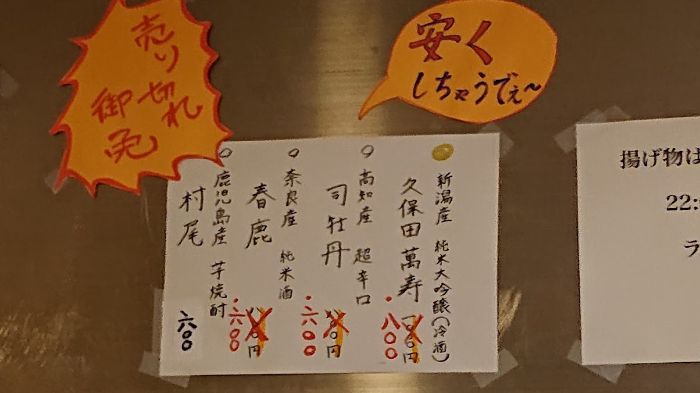 安く
しちゃうでぇ〜
売り切れ
御免
新潟産 純米大吟醸(冷酒)
久保田萬寿
八〇〇
高知産 超辛口
司牡丹
円
六〇〇
奈良産 純米酒
春鹿
円
六〇〇
鹿児島産 芋焼酎
村尾 六〇〇
揚げ物は
22:
ラ